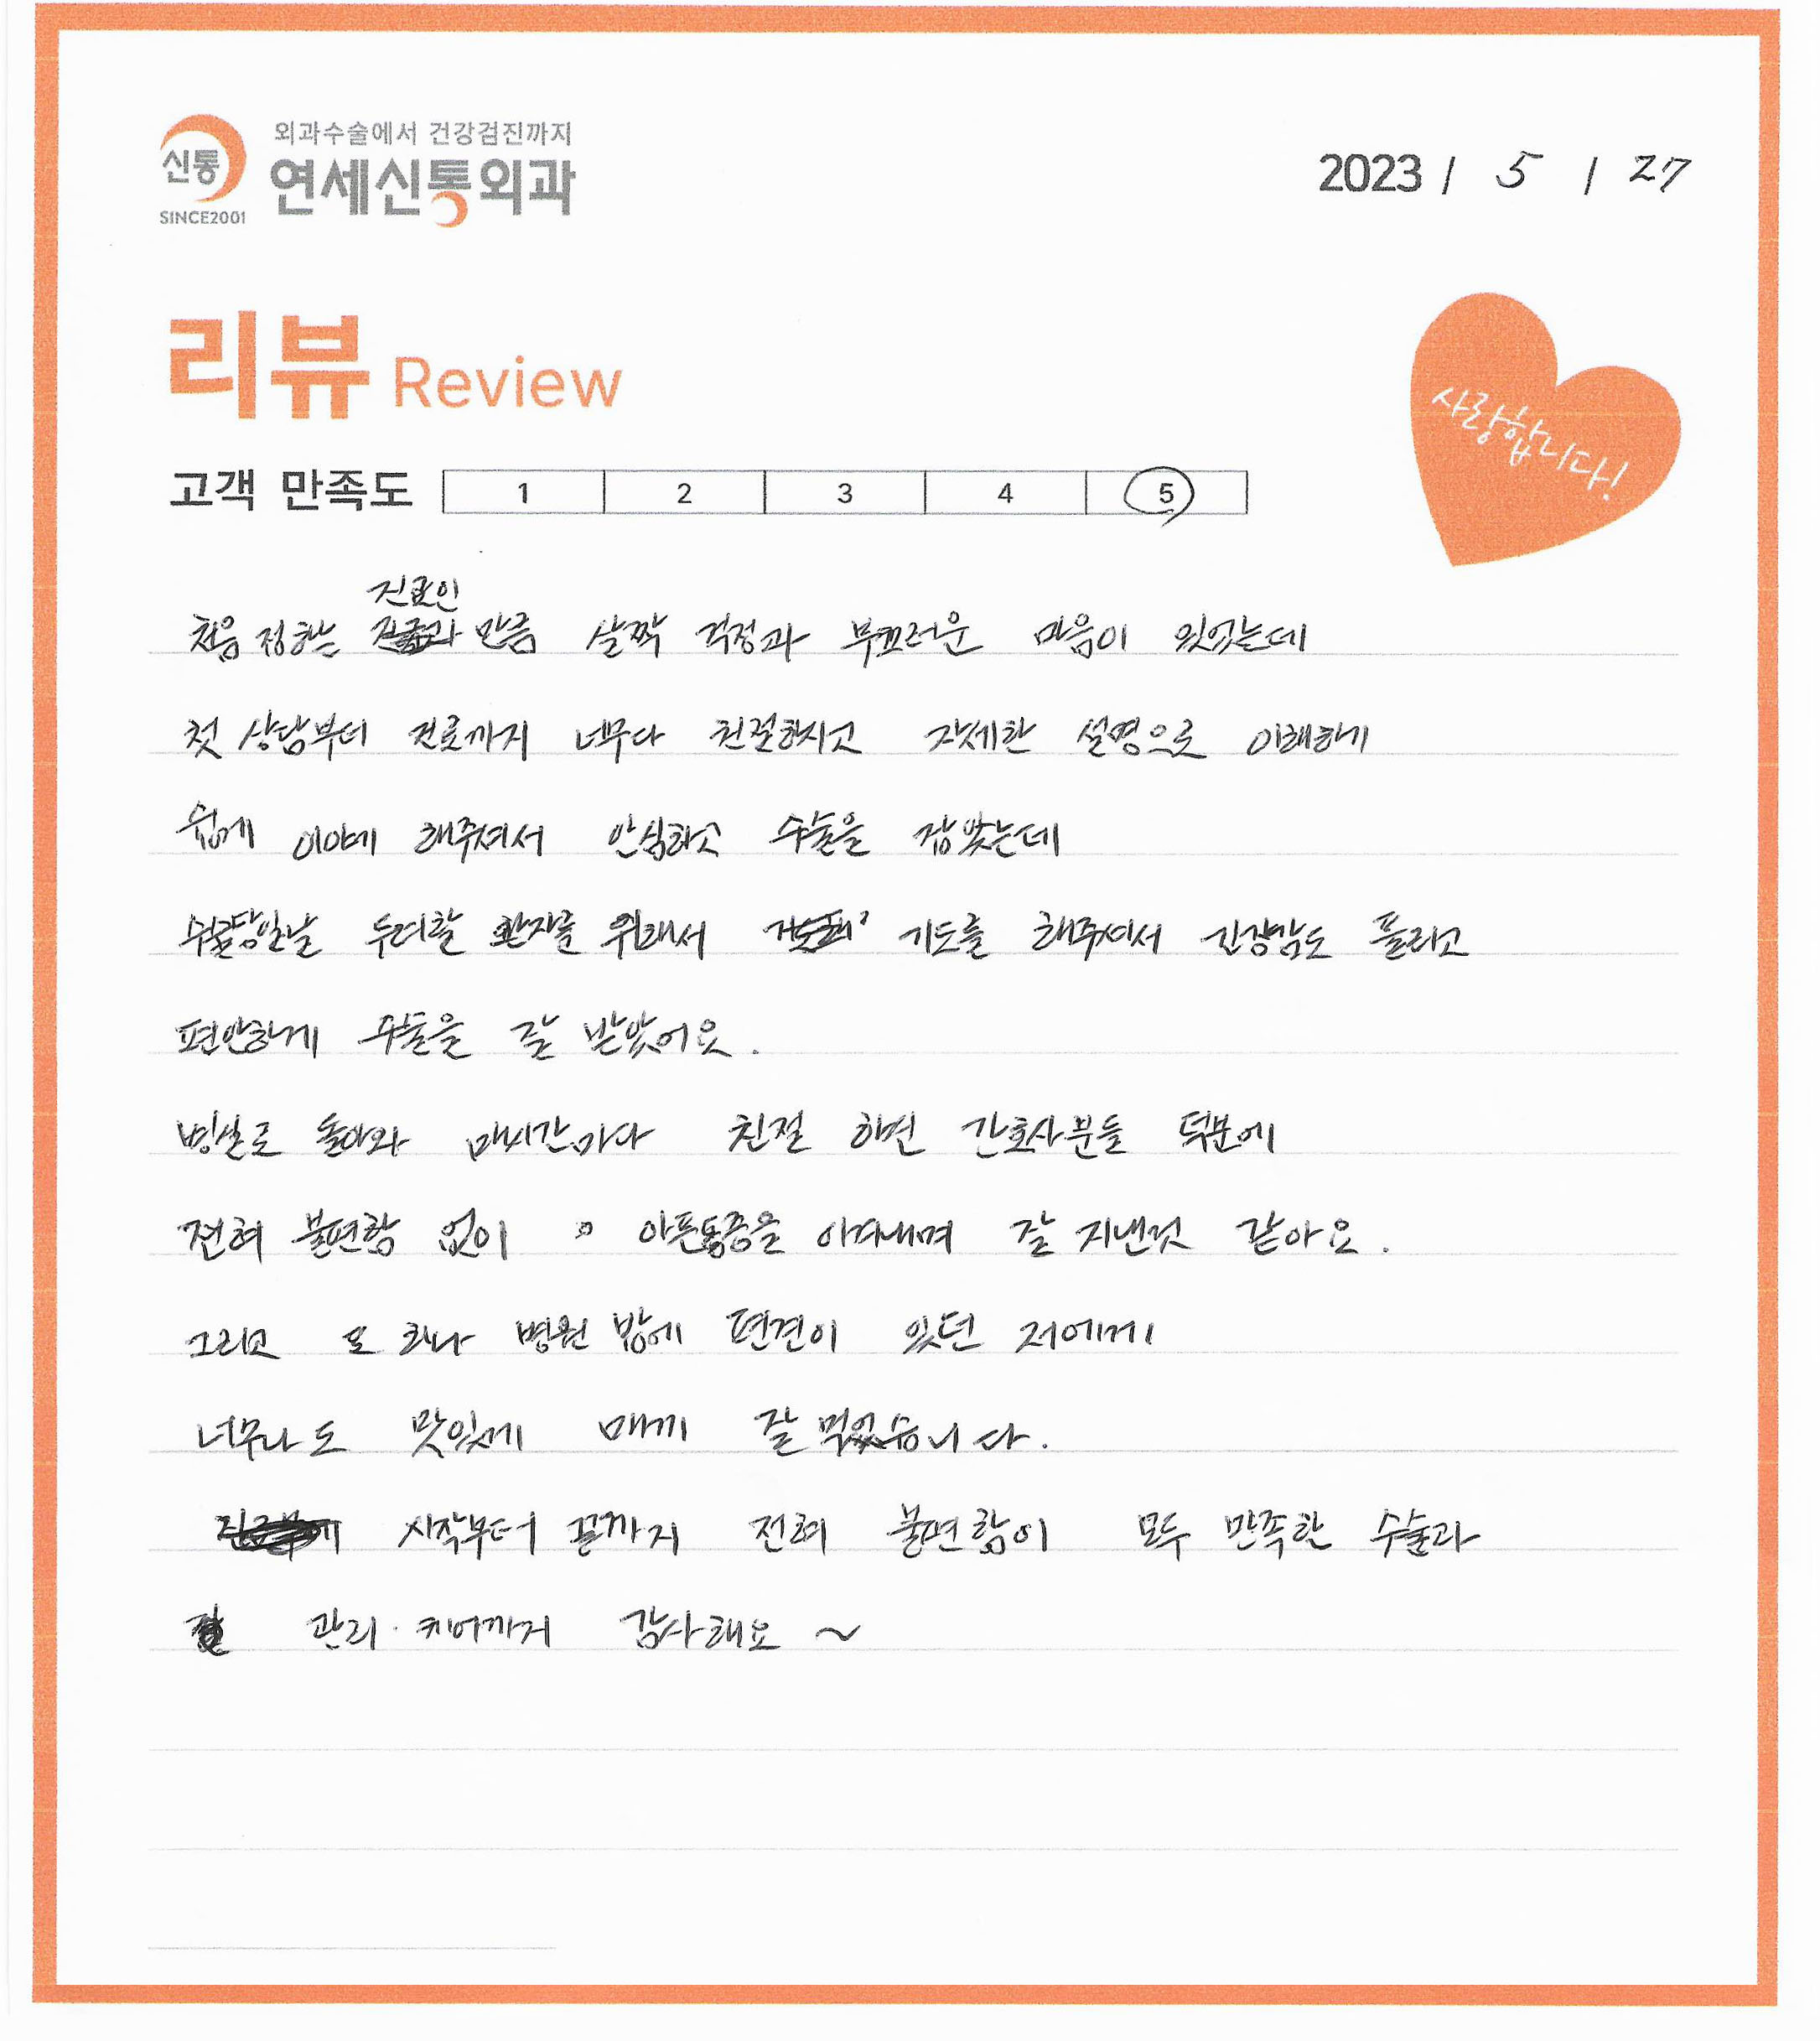 신통
SINCE2001
외과수술에서 건강검진까지
연세신통외과
2023 / 5 / 27
리뷰 Review
사랑합니다!
고객 만족도 1 2 3 4 5
진료인
처음 접하는 만큼 살짝 걱정과 부끄러운 마음이 있었는데
첫 상담부터 진료까지 너무다 친절하시고 자세한 설명으로 이해하기
쉽게 이야기 해주셔서 안심하고 수술을 잡았는데
수술당일날 환자를 위해서 기도를 해주셔서 긴장감도 풀리고
편안하게 수술을 잘 받았어요.
병실로 돌아와 매시간마다 친절 하면 간호사분들 덕분에
전혀 불편함 없이 아픈통증을 이겨내며 잘 지낸것 같아요.
그리고 또 하나 병원 밥에 편견이 있던 저에게
너무나도 맛있게 매끼 잘 먹었습니다.
시작부터 끝까지 전혀 불편함이 모두 만족한 수술과
관리·케어까지 감사해요 ~